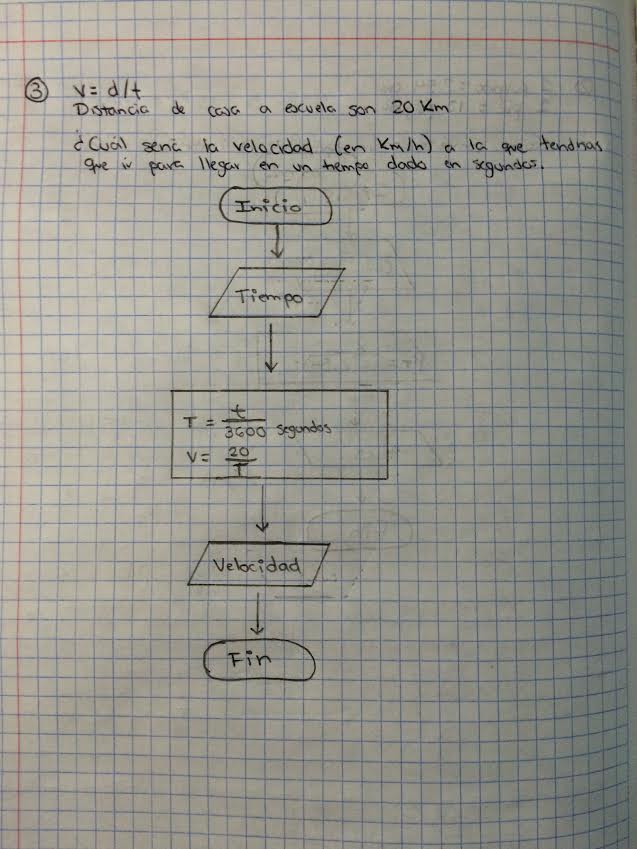 ③ V= d/t
Distancia de casa a escuela son 20 Km
¿Cuál será la velocidad (en Km/h) a la que tendrías
que ir para llegar en un tiempo dado en segundos.
Inicio
Tiempo
T = t/3600 segundos
V= 20/T
Velocidad
Fin